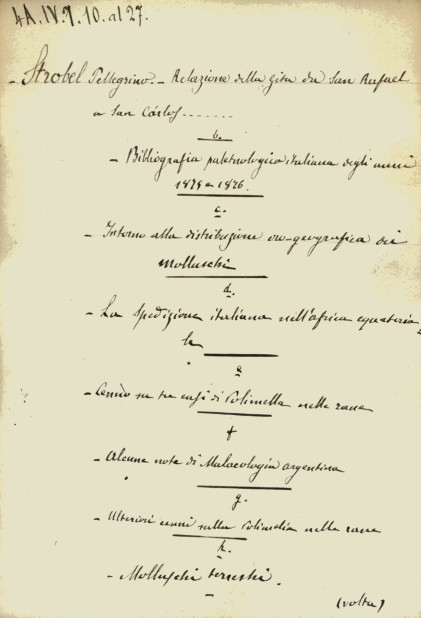 4A.IV.7.10.al 27.
- Strobel Pellegrino. - Relazione della gita da San Rafael
a San Cárlos.......
b.
- Bibliografia paletnologica italiana degli anni
1875 e 1876.
c.
- Intorno alla distribuzione oro-geografica dei
Molluschi
d.
- La Spedizione italiana nell'Africa equatoria
le
e
- Cenno su tre casi di Polimelia nelle rane
f
- Alcune note di Malacologia argentina
g.
- Ulteriori cenni sulla Polimelia nelle rane
h.
- Molluschi terrestri.
(volta)